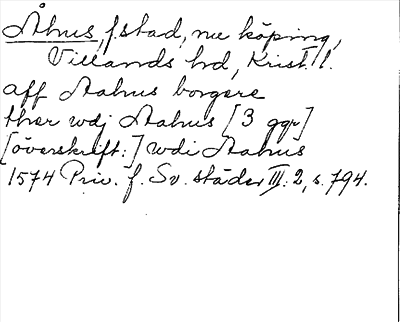 Åhus, f. stad, nu köping,
Villands hd, Krist. l.
aff Aahus borgere
ther wdj Aahus [3 ggr]
[överskrift:] wdi Aahus
1574 Priv. f. Sv. städer III: 2, s. 794.